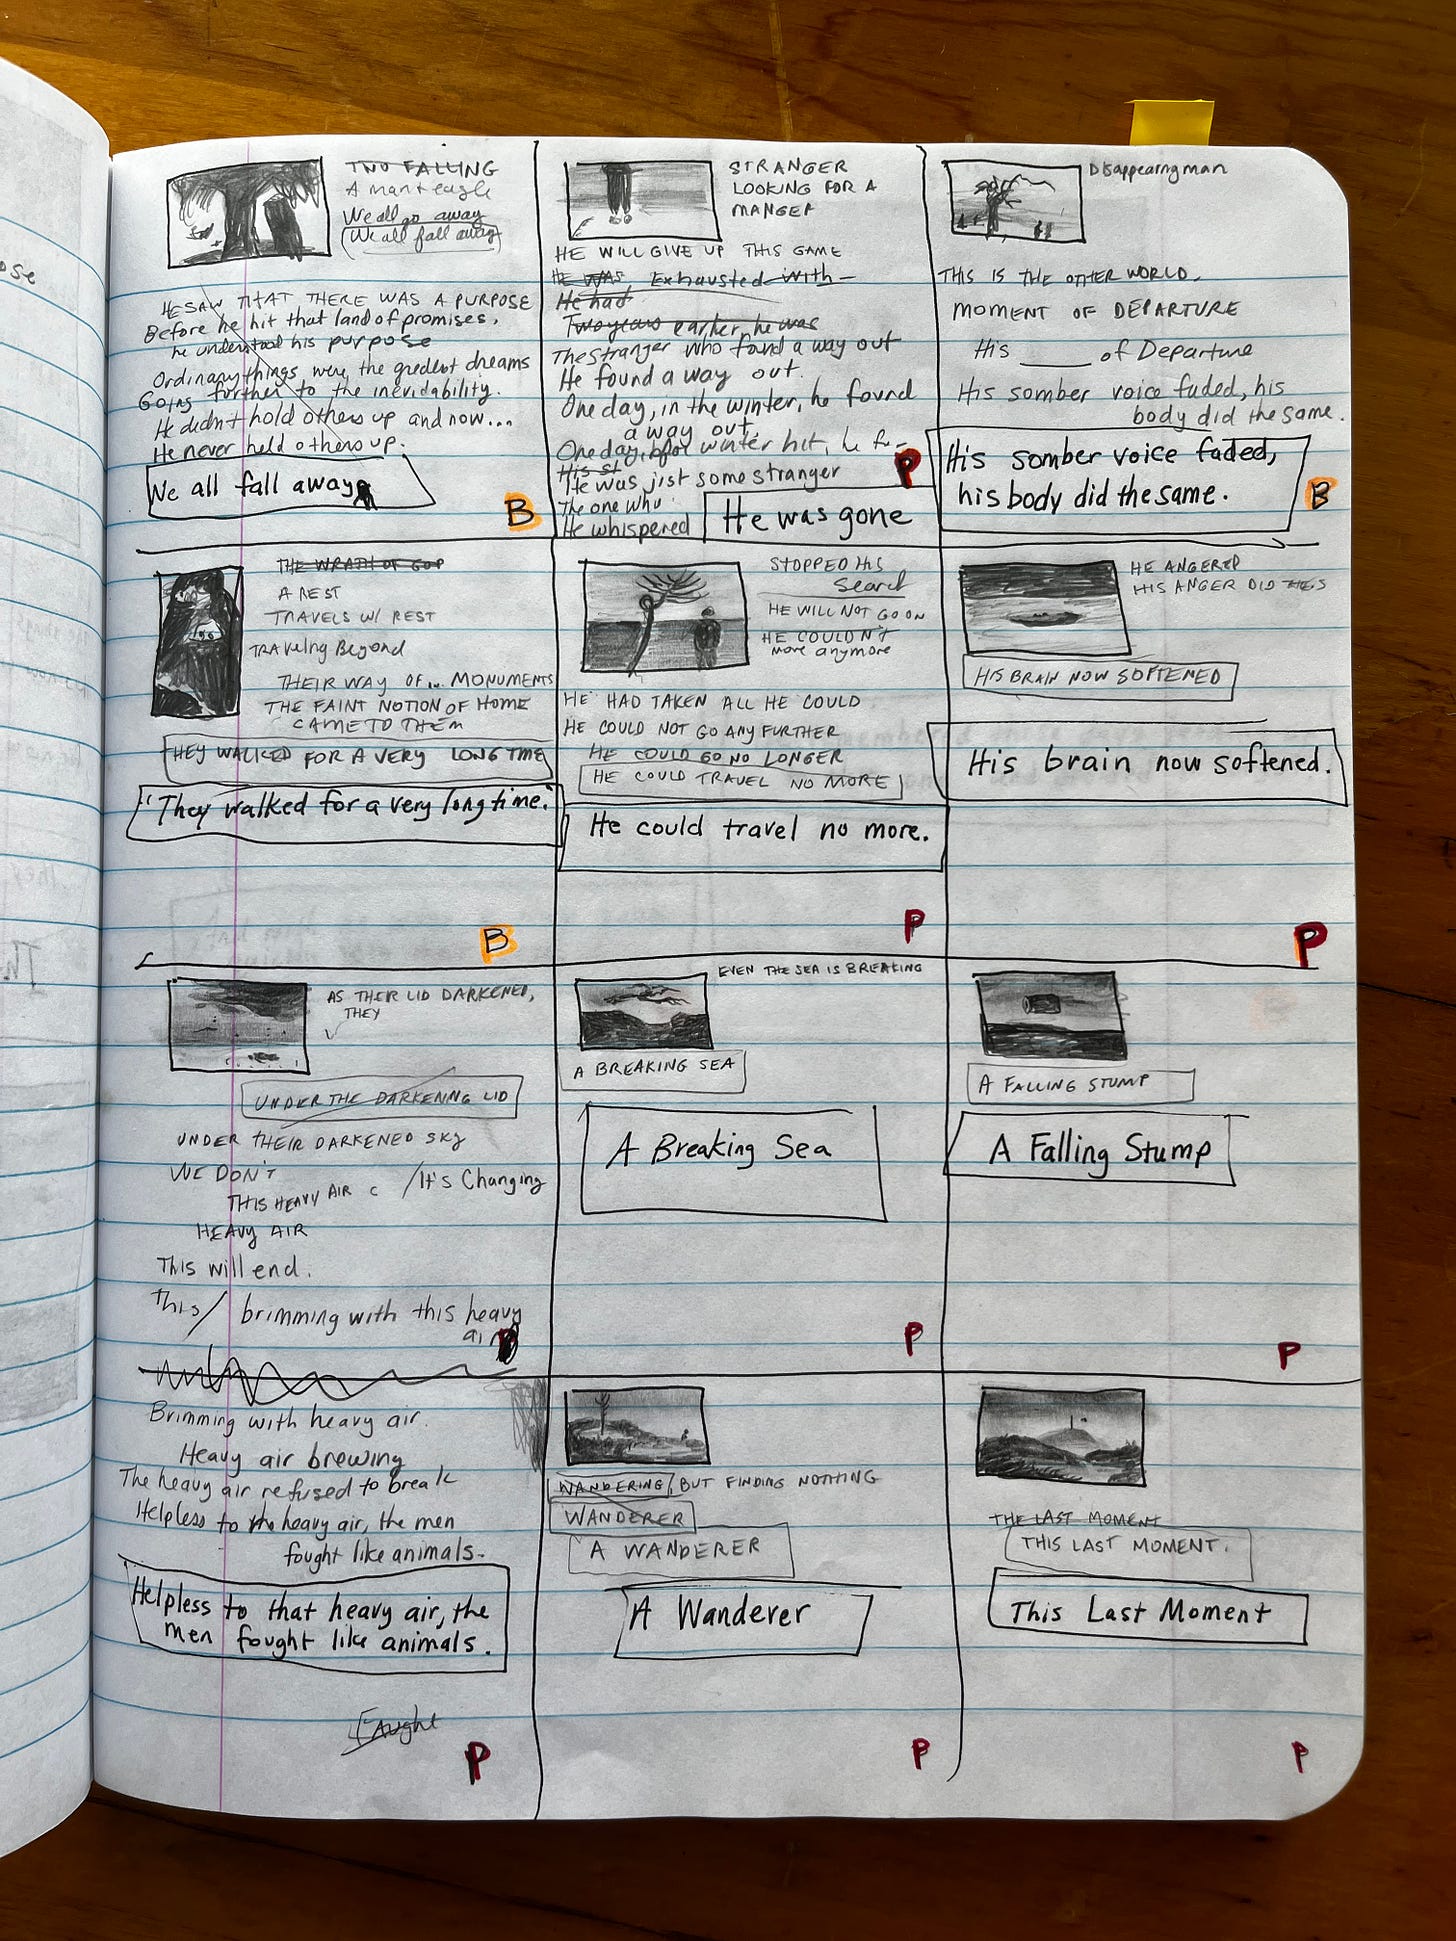 TWO FALLING
A man + eagle
We all go away
We all fall away
HE SAW THAT THERE WAS A PURPOSE
Before he hit that land of promises,
he understood his purpose
Ordinary things were the greatest dreams
Going further to the inevidability.
He didn't hold others up and now...
He never held others up.
We all fall away
B
STRANGER
LOOKING FOR A
MANGER
HE WILL GIVE UP THIS GAME
HE WAS, Exhausted with—
He had
Two years earlier, he was
The stranger who found a way out
He found a way out.
One day, in the winter, he found
a way out.
One day, before winter hit, he f–
His st
He was just some stranger
The one who
He whispered
He was gone
P
Disappearing man
THIS IS THE OTHER WORLD.
MOMENT OF DEPARTURE
His ____ of Departure
His somber voice faded, his
body did the same.
His somber voice faded,
his body did the same.
B
THE WRATH OF GOD
A REST
TRAVELS W/ REST
Traveling Beyond
THEIR WAY OF... MONUMENTS
THE FAINT NOTION OF HOME
CAME TO THEM
THEY WALKED FOR A VERY LONG TIME
"They walked for a very long time."
B
STOPPED HIS
Search
HE WILL NOT GO ON
HE COULDN'T
move anymore
HE HAD TAKEN ALL HE COULD
HE COULD NOT GO ANY FURTHER
HE COULD GO NO LONGER
HE COULD TRAVEL NO MORE
He could travel no more.
P
HE ANGERED
HIS ANGER DID THIS
HIS BRAIN NOW SOFTENED
His brain now softened.
P
AS THEIR LID DARKENED,
THEY
UNDER THE DARKENING LID
UNDER THEIR DARKENED SKY
WE DON'T
THIS HEAVY AIR C / It's Changing
HEAVY AIR
This will end.
This / brimming with this heavy
air
P
EVEN THE SEA IS BREAKING
A BREAKING SEA
A Breaking Sea
P
A FALLING STUMP
A Falling Stump
P
Brimming with heavy air.
Heavy air brewing
The heavy air refused to break
Helpless to the heavy air, the men
fought like animals.
Helpless to that heavy air, the
men fought like animals.
P
WANDERING, BUT FINDING NOTHING
WANDERER
A WANDERER
A Wanderer
P
THE LAST MOMENT
THIS LAST MOMENT.
This Last Moment
P